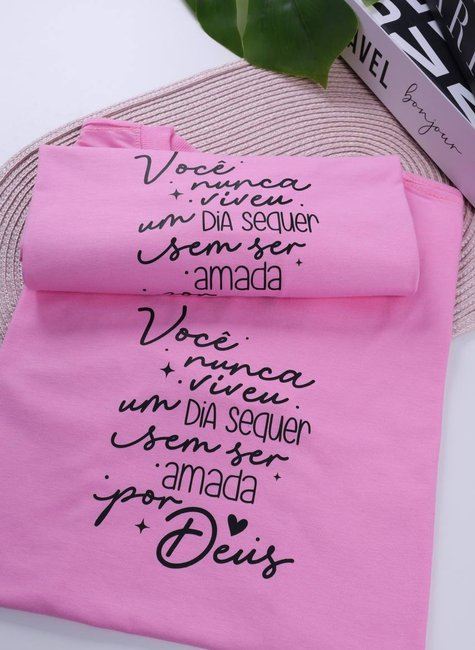 AVEL
bonjour
Você
nunca
viveu
um DIA sequer
sem ser
amada
Você
nunca
viveu
um DIA sequer
sem ser
amada
por
Deus